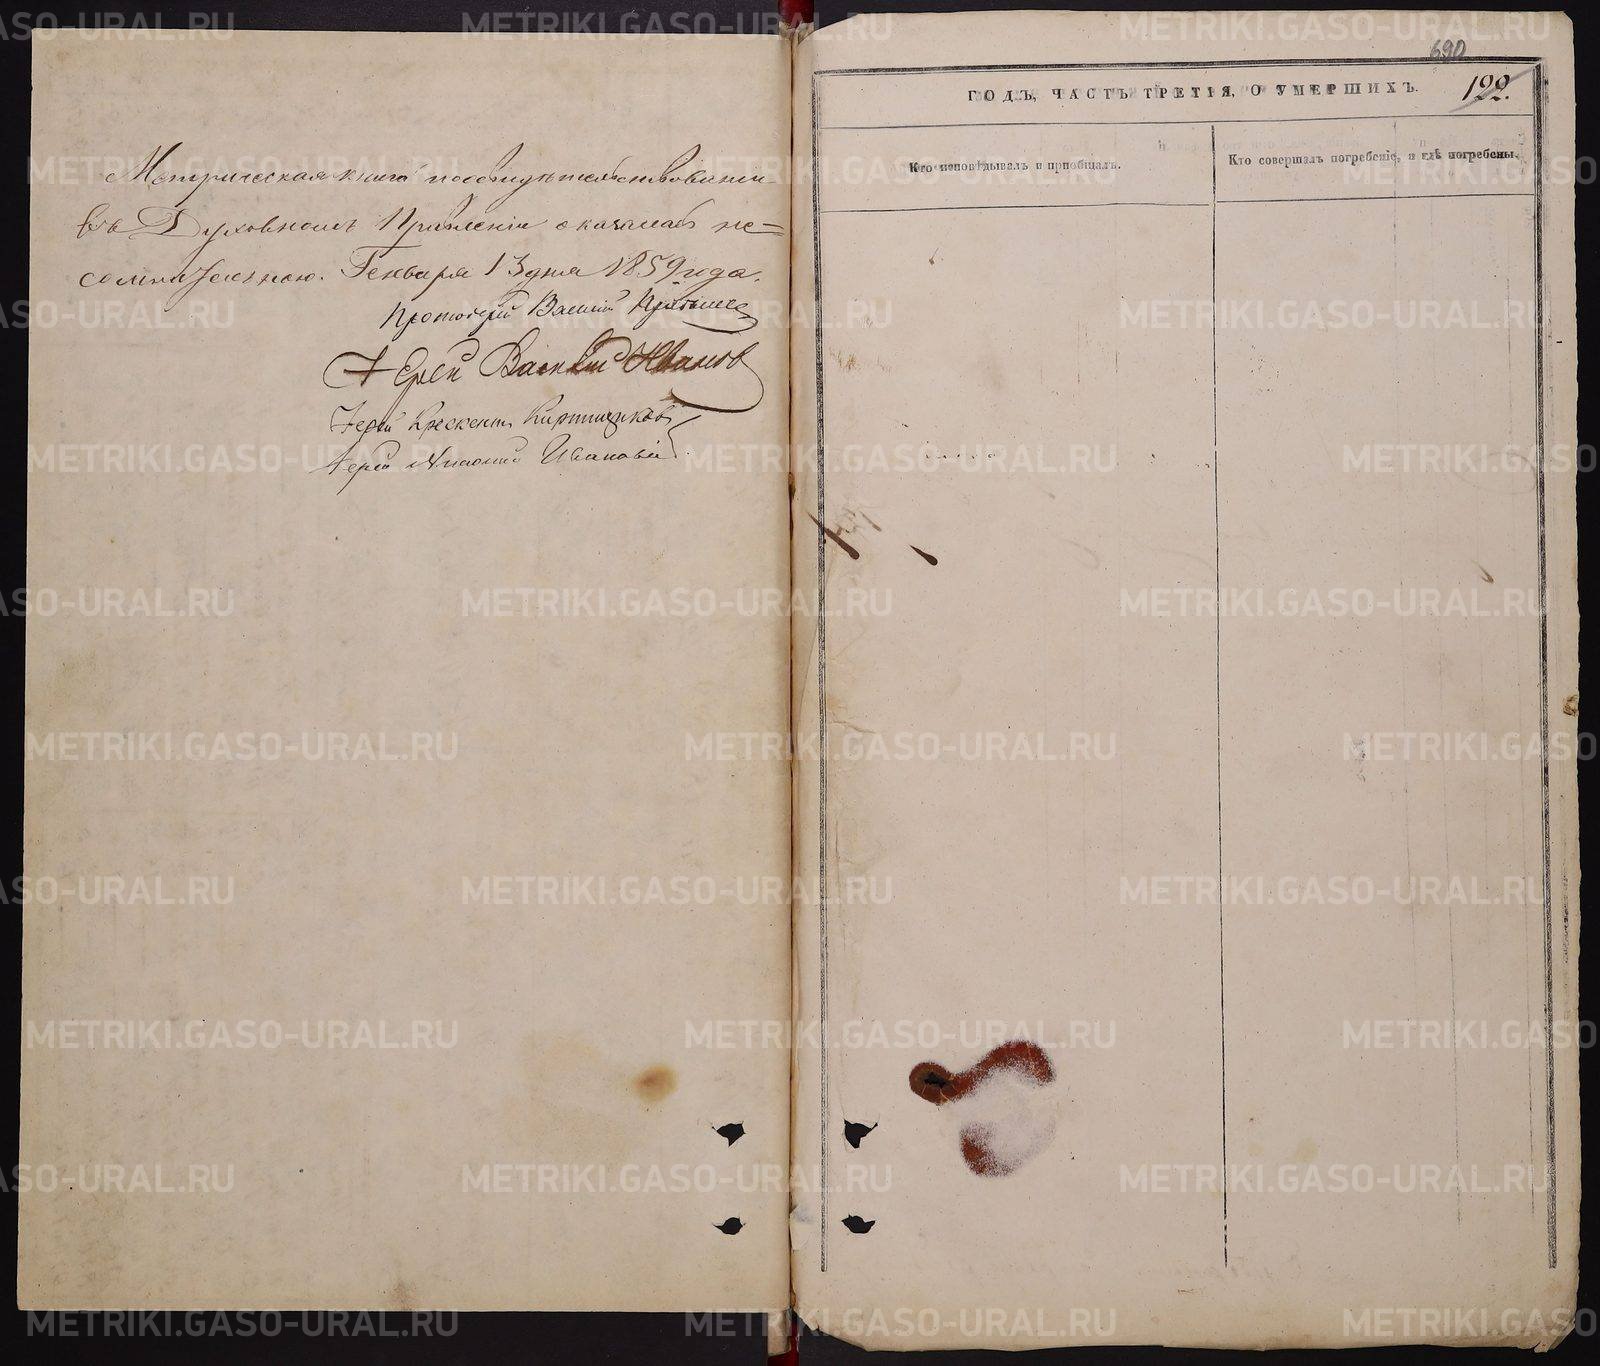 Метрическая книга по освидѣтельствованіи
въ Духовномъ Правленіи оказалась не=
сомнительною. Генваря 13 дня 1859 года.
Протоіерей Василій
Іерей Василій Ивановъ
Іерей Крескентъ Кирпищиковъ
Іерей Ивановъ
690
ГОДЪ, ЧАСТЬ ТРЕТІЯ, О УМЕРШИХЪ.
122.
Кто исповѣдывалъ и пріобщалъ.
Кто совершалъ погребеніе, и гдѣ погребены.
METRIKI.GASO-URAL.RU